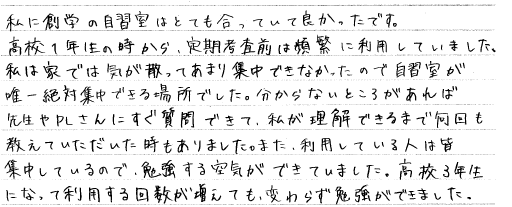 私に創学の自習室はとても合っていて良かったです。
高校1年生の時から、定期考査前は頻繁に利用していました。
私は家では気が散ってあまり集中できなかったので自習室が
唯一絶対集中できる場所でした。分からないところがあれば
先生やPLさんにすぐ質問できて、私が理解できるまで何回も
教えていただいた時もありました。また、利用している人は皆
集中しているので、勉強する空気ができていました。高校3年生
になって利用する回数が増えても、変わらず勉強ができました。